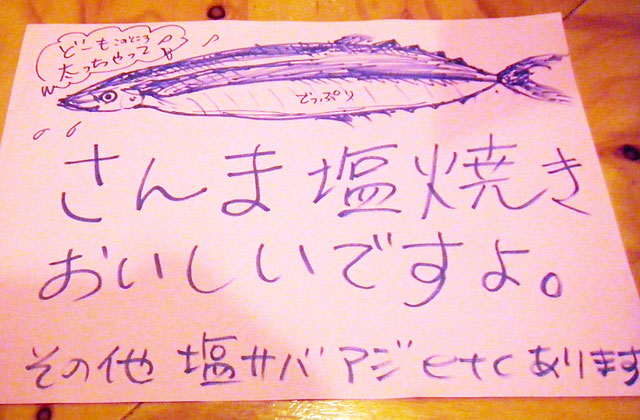 どーもこのところ
太っちゃって♪
でっぷり
さんま塩焼き
おいしいですよ。
その他 塩サバ アジ etc あります